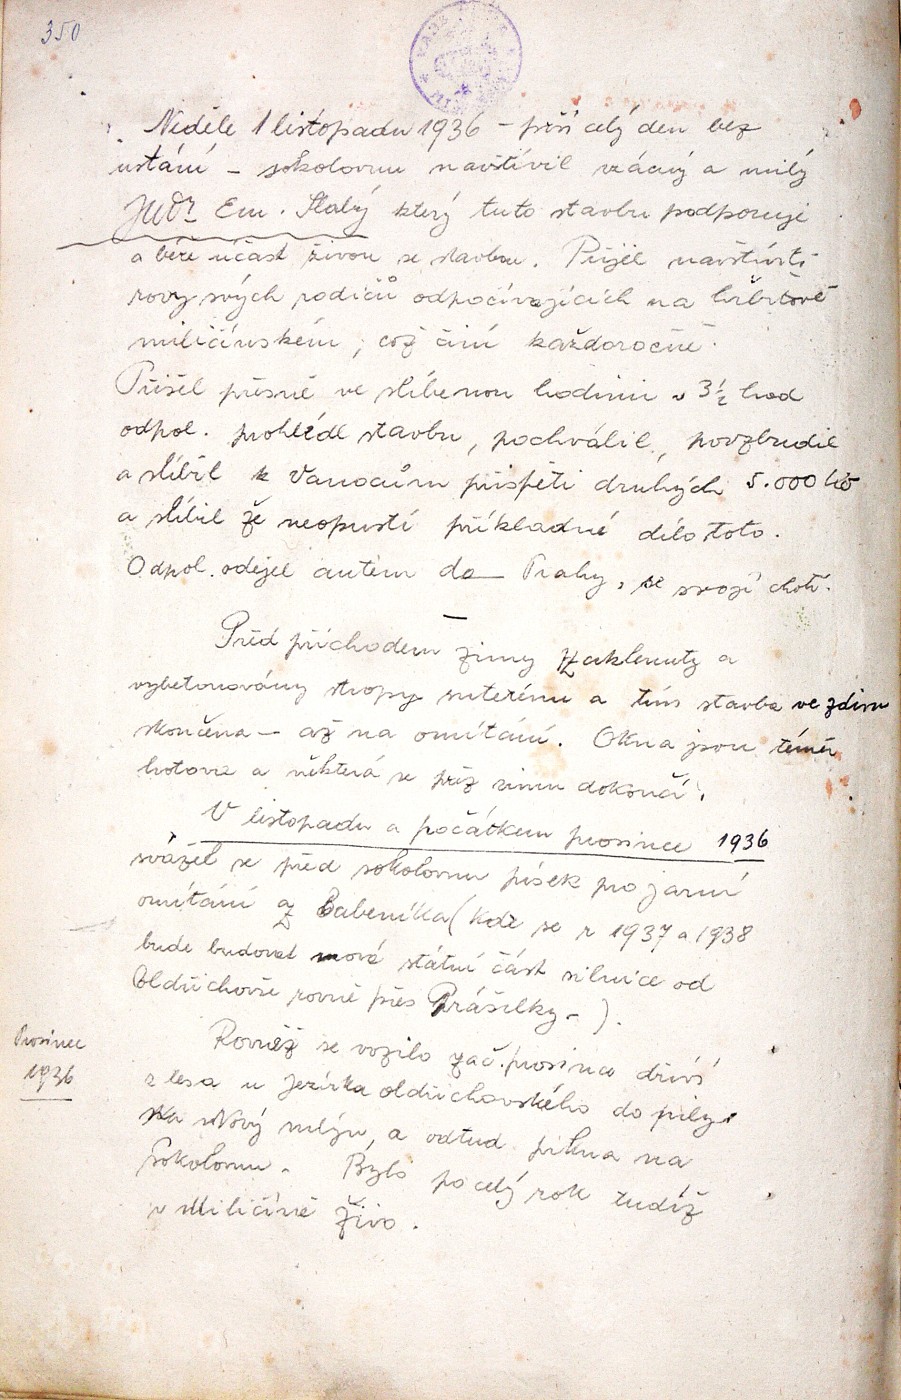 350
Neděle 1 listopadu 1936 - prší celý den bez
ustání - sokolovnu navštívil vzácný a milý
JUDr Em. Slabý který tuto stavbu podporuje
a béře účast živou se stavbou. Přijel navštíviti
rovy svých rodičů odpočívajících na hřbitově
miličínském, což činí každoročně.
Přišel přesně ve slíbenou hodinu v 3½ hod
odpol. prohlédl stavbu, pochválil, povzbudil
a slíbil k Vánocům přispěti druhých 5.000 Kč
a slíbil že neopustí příkladné dílo toto.
Odpol. odejel autem do Prahy, se svojí chotí.
Před příchodem zimy zaklenuty a
vybetonovány stropy suterénu a tím stavba ve zdivu
skončena - až na omítání. Okna jsou téměř
hotova a některá se přes zimu dokončí.
V listopadu a počátkem prosince 1936
svážel se před sokolovnu písek pro jarní
omítání z Babeníka (kde se r 1937 a 1938
bude budovat nová státní část silnice od
Oldřichovce rovně přes Prášilky -).
Prosinec
1936
Rovněž se vozilo zač. prosince dříví
z lesa u Jezírka oldřichovského do pily
na Nový mlýn, a odtud prkna na
Sokolovnu. Bylo po celý rok tudíž
v Miličíně živo.